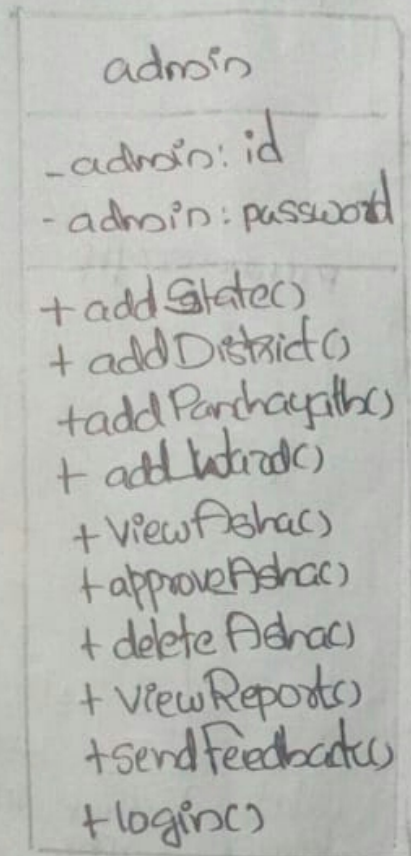 admin
- admin: id
- admin: password
+ addState()
+ addDistrict()
+ addPanchayath()
+ addWard()
+ viewAsha()
+ approveAsha()
+ deleteAsha()
+ viewReport()
+ sendfeedback()
+ login()